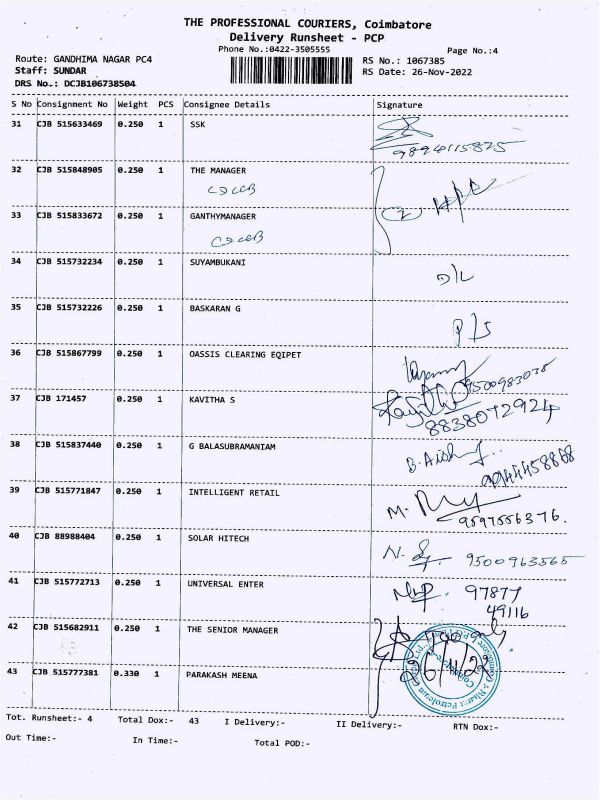 THE PROFESSIONAL COURIERS, Coimbatore
Delivery Runsheet - PCP
Phone No.:0422-3505555
Page No.:4
Route: GANDHIMA NAGAR PC4
RS No.: 1067385
Staff: SUNDAR
RS Date: 26-Nov-2022
DRS No.: DCJB106738504
S No Consignment No Weight PCS Consignee Details Signature
31 CJB 515633469 0.250 1 SSK
9894115825
32 CJB 515848905 0.250 1 THE MANAGER
33 CJB 515833672 0.250 1 GANTHYMANAGER
34 CJB 515732234 0.250 1 SUYAMBUKANI
D/L
35 CJB 515732226 0.250 1 BASKARAN G
P/S
36 CJB 515867799 0.250 1 OASSIS CLEARING EQIPET
9500983038
37 CJB 171457 0.250 1 KAVITHA S
Kavitha
8838072924
38 CJB 515837440 0.250 1 G BALASUBRAMANIAM
39 CJB 515771847 0.250 1 INTELLIGENT RETAIL
9597556376.
40 CJB 88988404 0.250 1 SOLAR HITECH
9500963565
41 CJB 515772713 0.250 1 UNIVERSAL ENTER
97877
49116
42 CJB 515682911 0.250 1 THE SENIOR MANAGER
26/11/22
43 CJB 515777381 0.330 1 PARAKASH MEENA
Tot. Runsheet:- 4 Total Dox:- 43 I Delivery:- II Delivery:- RTN Dox:-
Out Time:- In Time:- Total POD:-